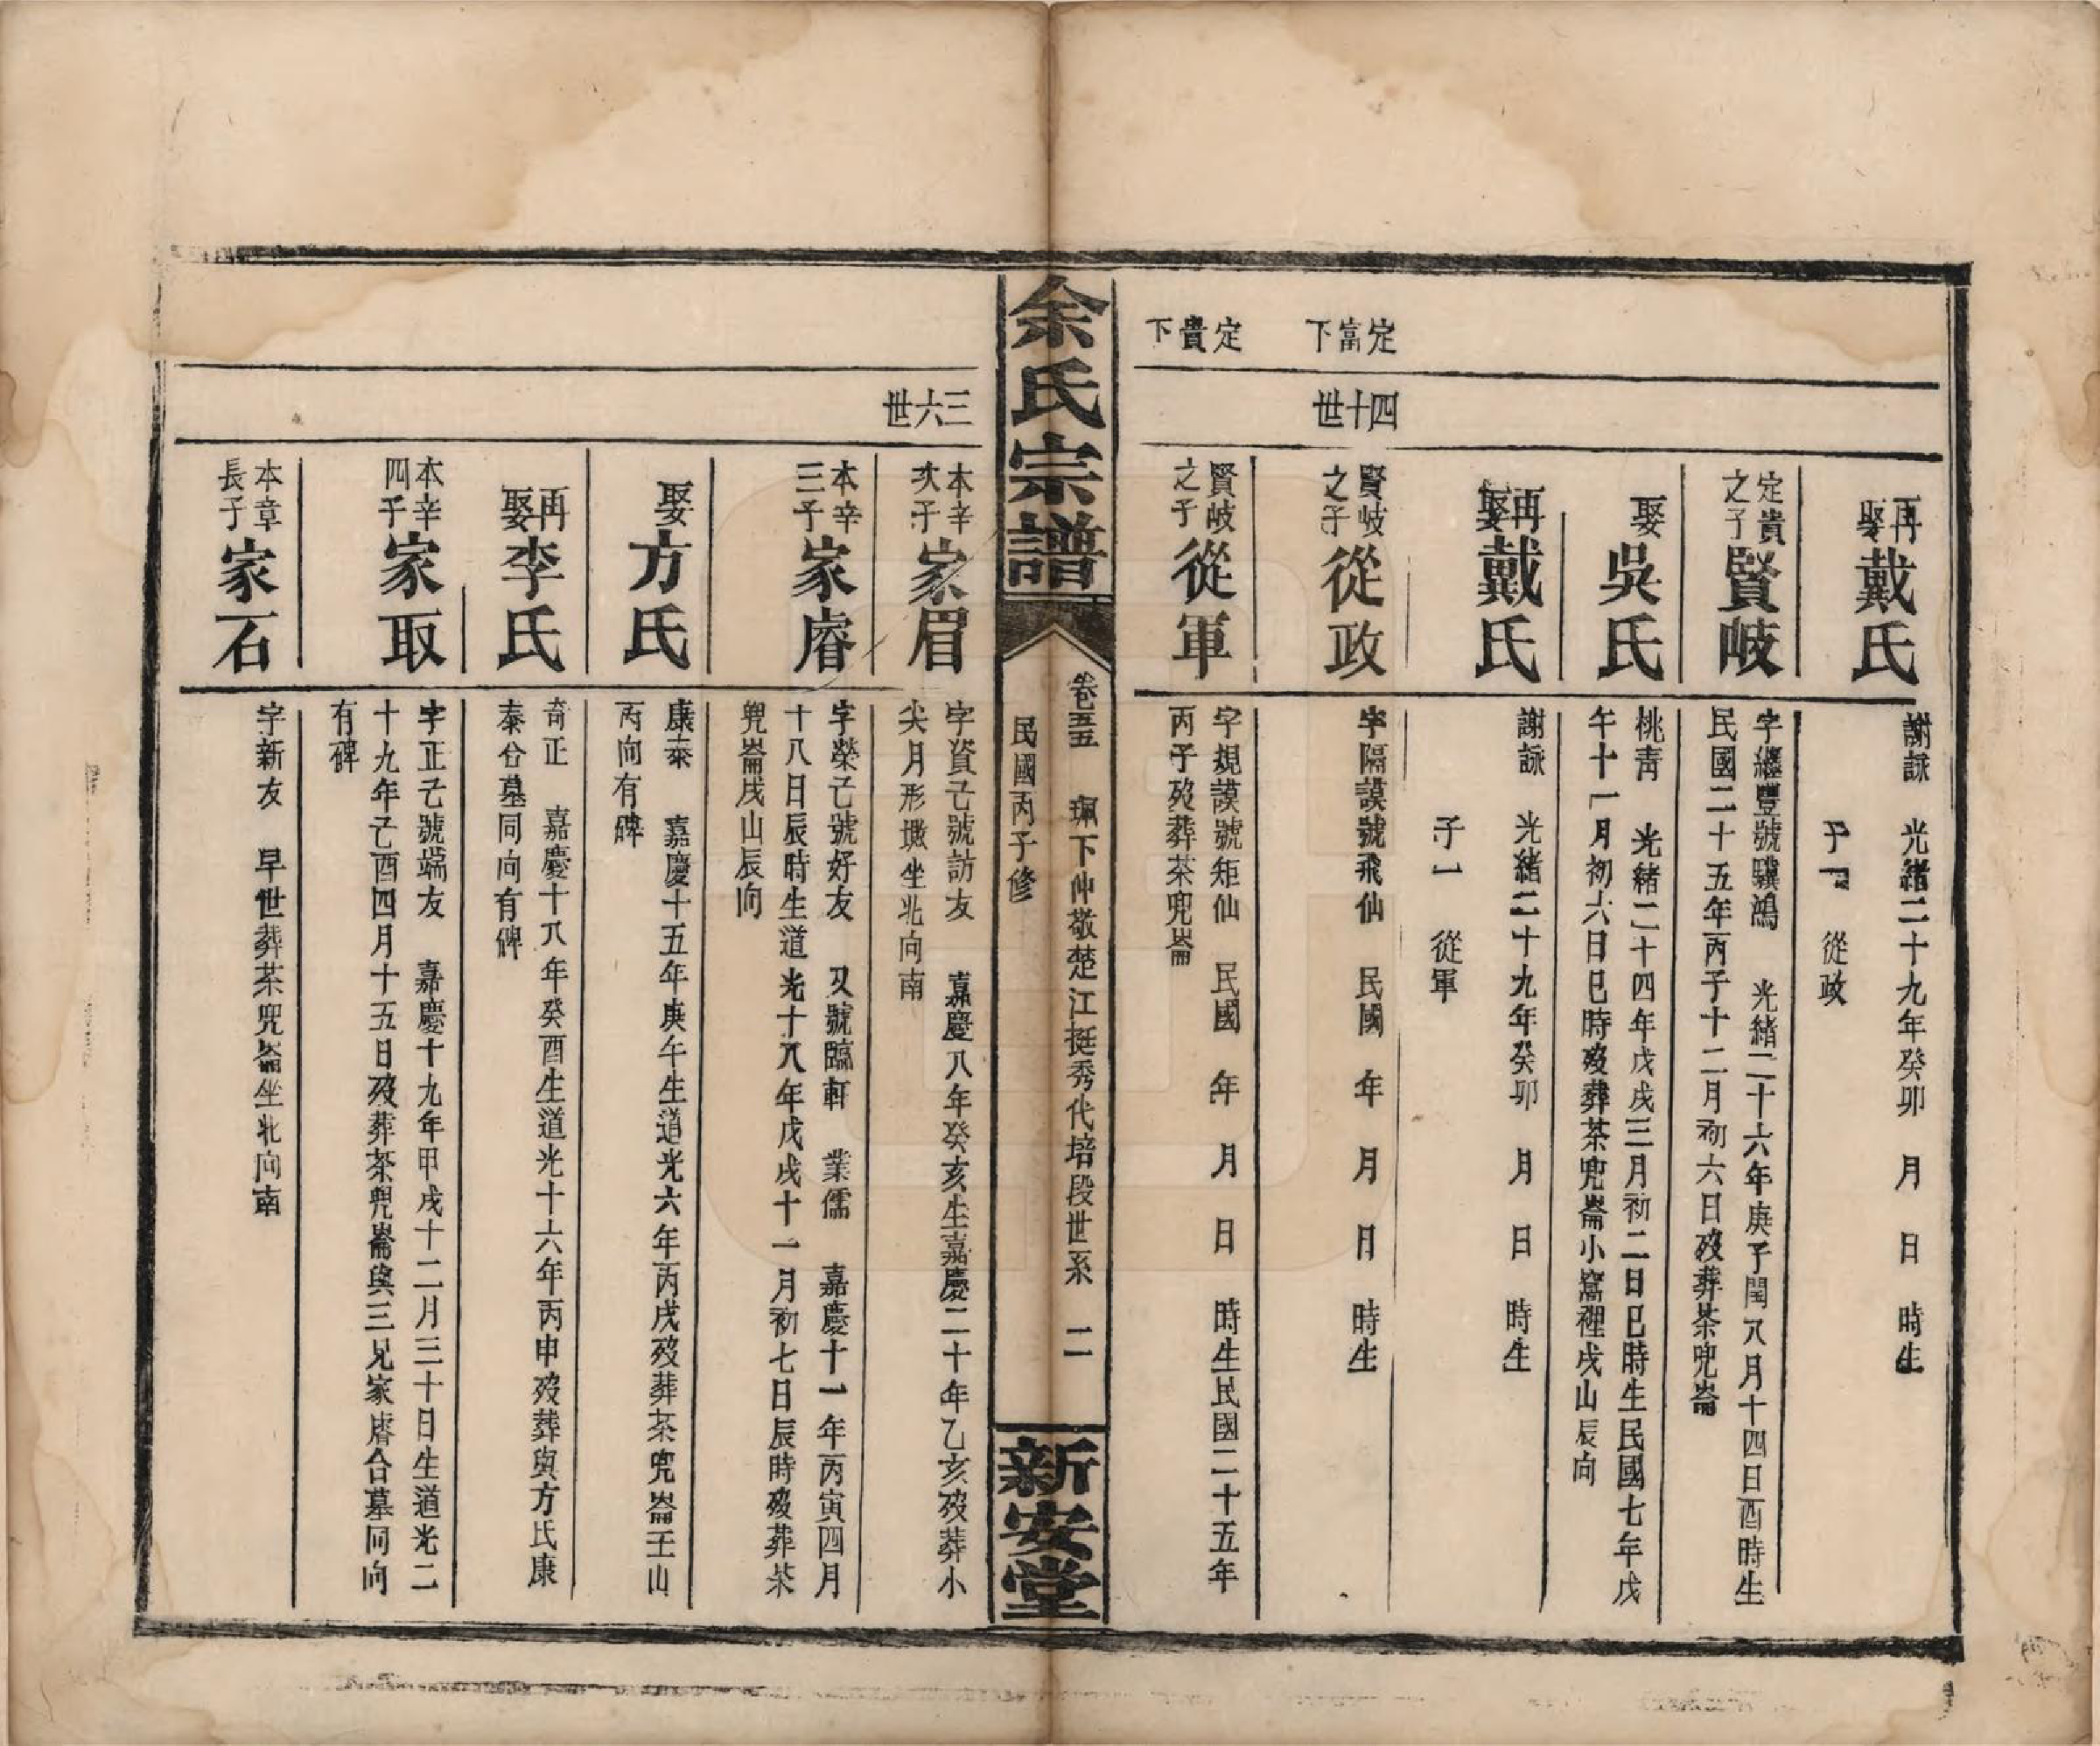 再娶戴氏
謝詠　光緒二十九年癸卯　月　日　時生
子一　從政
定貴之子賢岐
字繼豐號驥鴻　光緒二十六年庚子閏八月十四日酉時生
民國二十五年丙子十二月初六日歿葬茶兜崙
娶吳氏
桃靑　光緒二十四年戊戌三月初二日巳時生民國七年戊
午十一月初六日巳時歿葬茶兜崙小窩裡戌山辰向
再娶戴氏
謝詠　光緒二十九年癸卯　月　日　時生
子一　從軍
定富下
四十世
賢岐之子從政
字隔謨號飛仙　民國　年　月　日　時生
定貴下
賢岐之子從軍
字規謨號矩仙　民國　年　月　日　時生民國二十五年
丙子歿葬茶兜崙
余氏宗譜
卷五五　珮下仲敬楚江挺秀代培段世系　二
民國丙子修
新安堂
三六世
本辛次子家眉
字資己號訪友　嘉慶八年癸亥生嘉慶二十年乙亥歿葬小
尖月形墩坐北向南
本辛三子家𢋫
字榮己號好友　又號臨軒　業儒　嘉慶十一年丙寅四月
十八日辰時生道光十八年戊戌十一月初七日辰時歿葬茶
兜崙戌山辰向
娶方氏
康泰　嘉慶十五年庚午生道光六年丙戌歿葬茶兜崙壬山
丙向有碑
再娶李氏
奇正　嘉慶十八年癸酉生道光十六年丙申歿葬與方氏康
泰仝墓同向有碑
本辛四子家取
字正己號端友　嘉慶十九年甲戌十二月三十日生道光二
十九年己酉四月十五日歿葬茶兜崙與三兄家𢋫合墓同向
有碑
本章長子家石
字新友　早世葬茶兜崙坐北向南